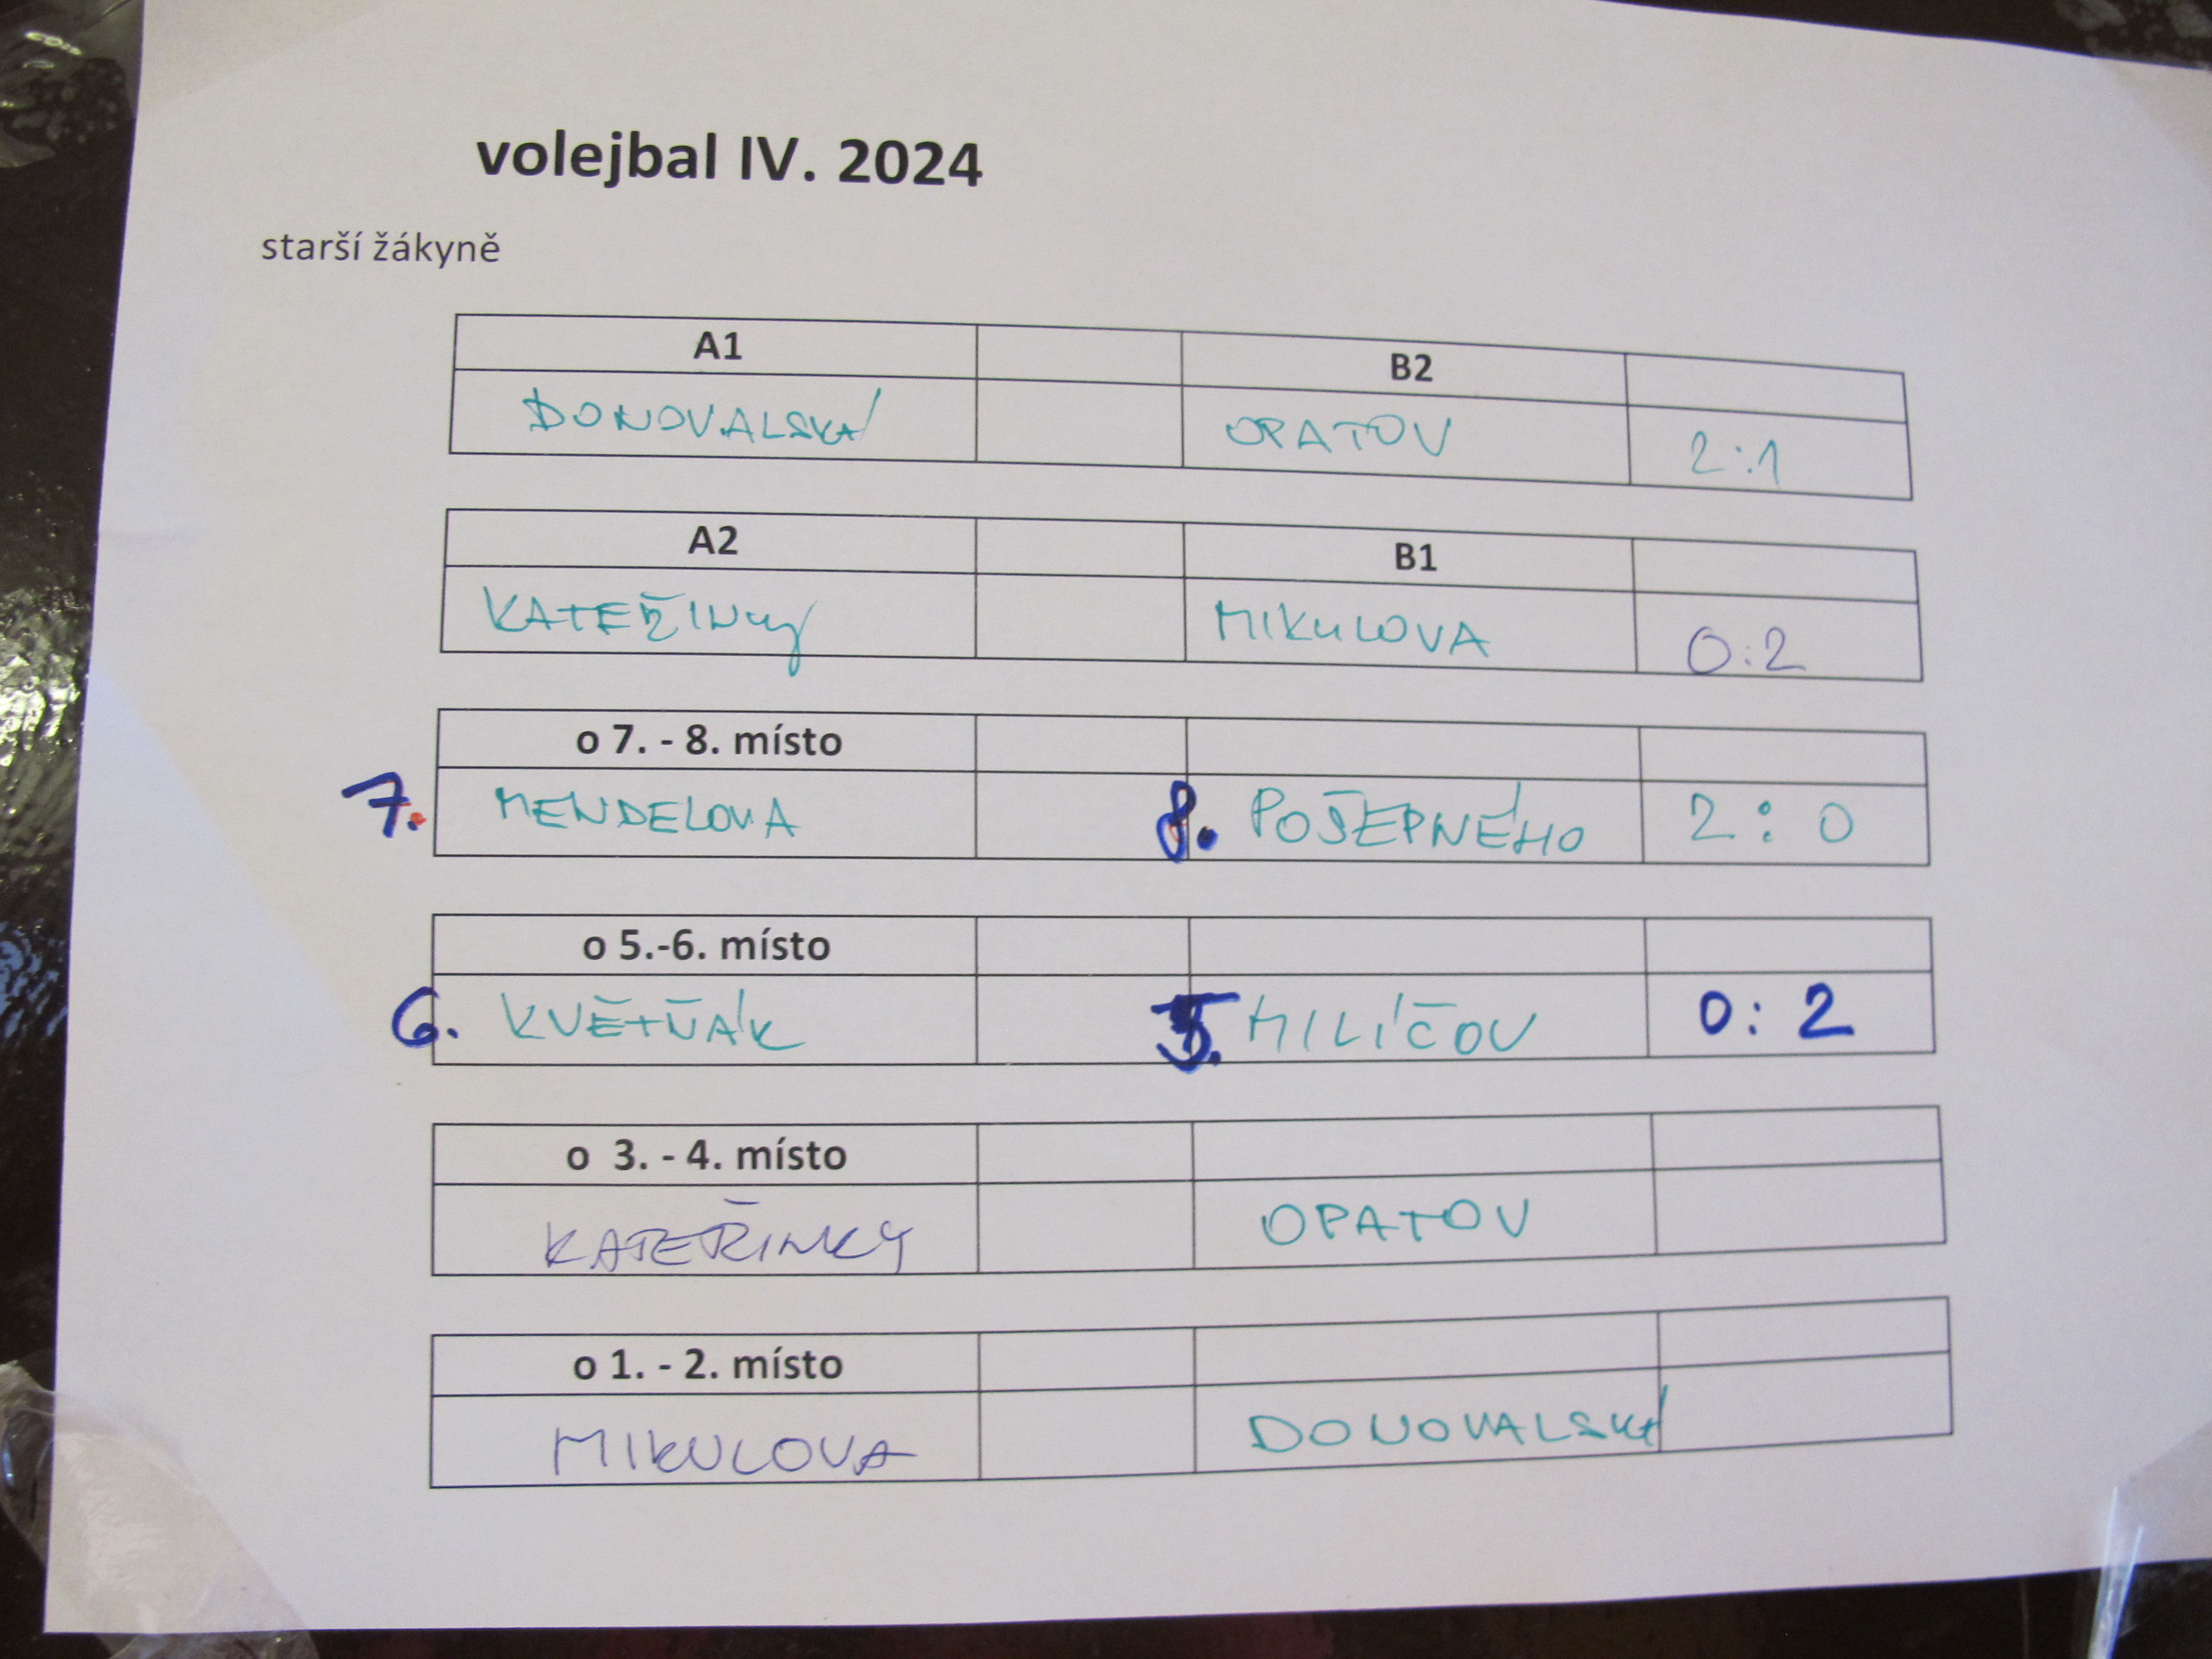 volejbal IV. 2024
starší žákyně
A1 B2
DONOVALSKÁ OPATOV 2:1
A2 B1
KATEŘINKY MIKULOVA 0:2
o 7. - 8. místo
7. MENDELOVA 8. POŠEPNÉHO 2:0
o 5.-6. místo
6. KVĚTŇÁK 5. MILÍČOV 0:2
o 3. - 4. místo
KATEŘINKY OPATOV
o 1. - 2. místo
MIKULOVA DONOVALSKÁ